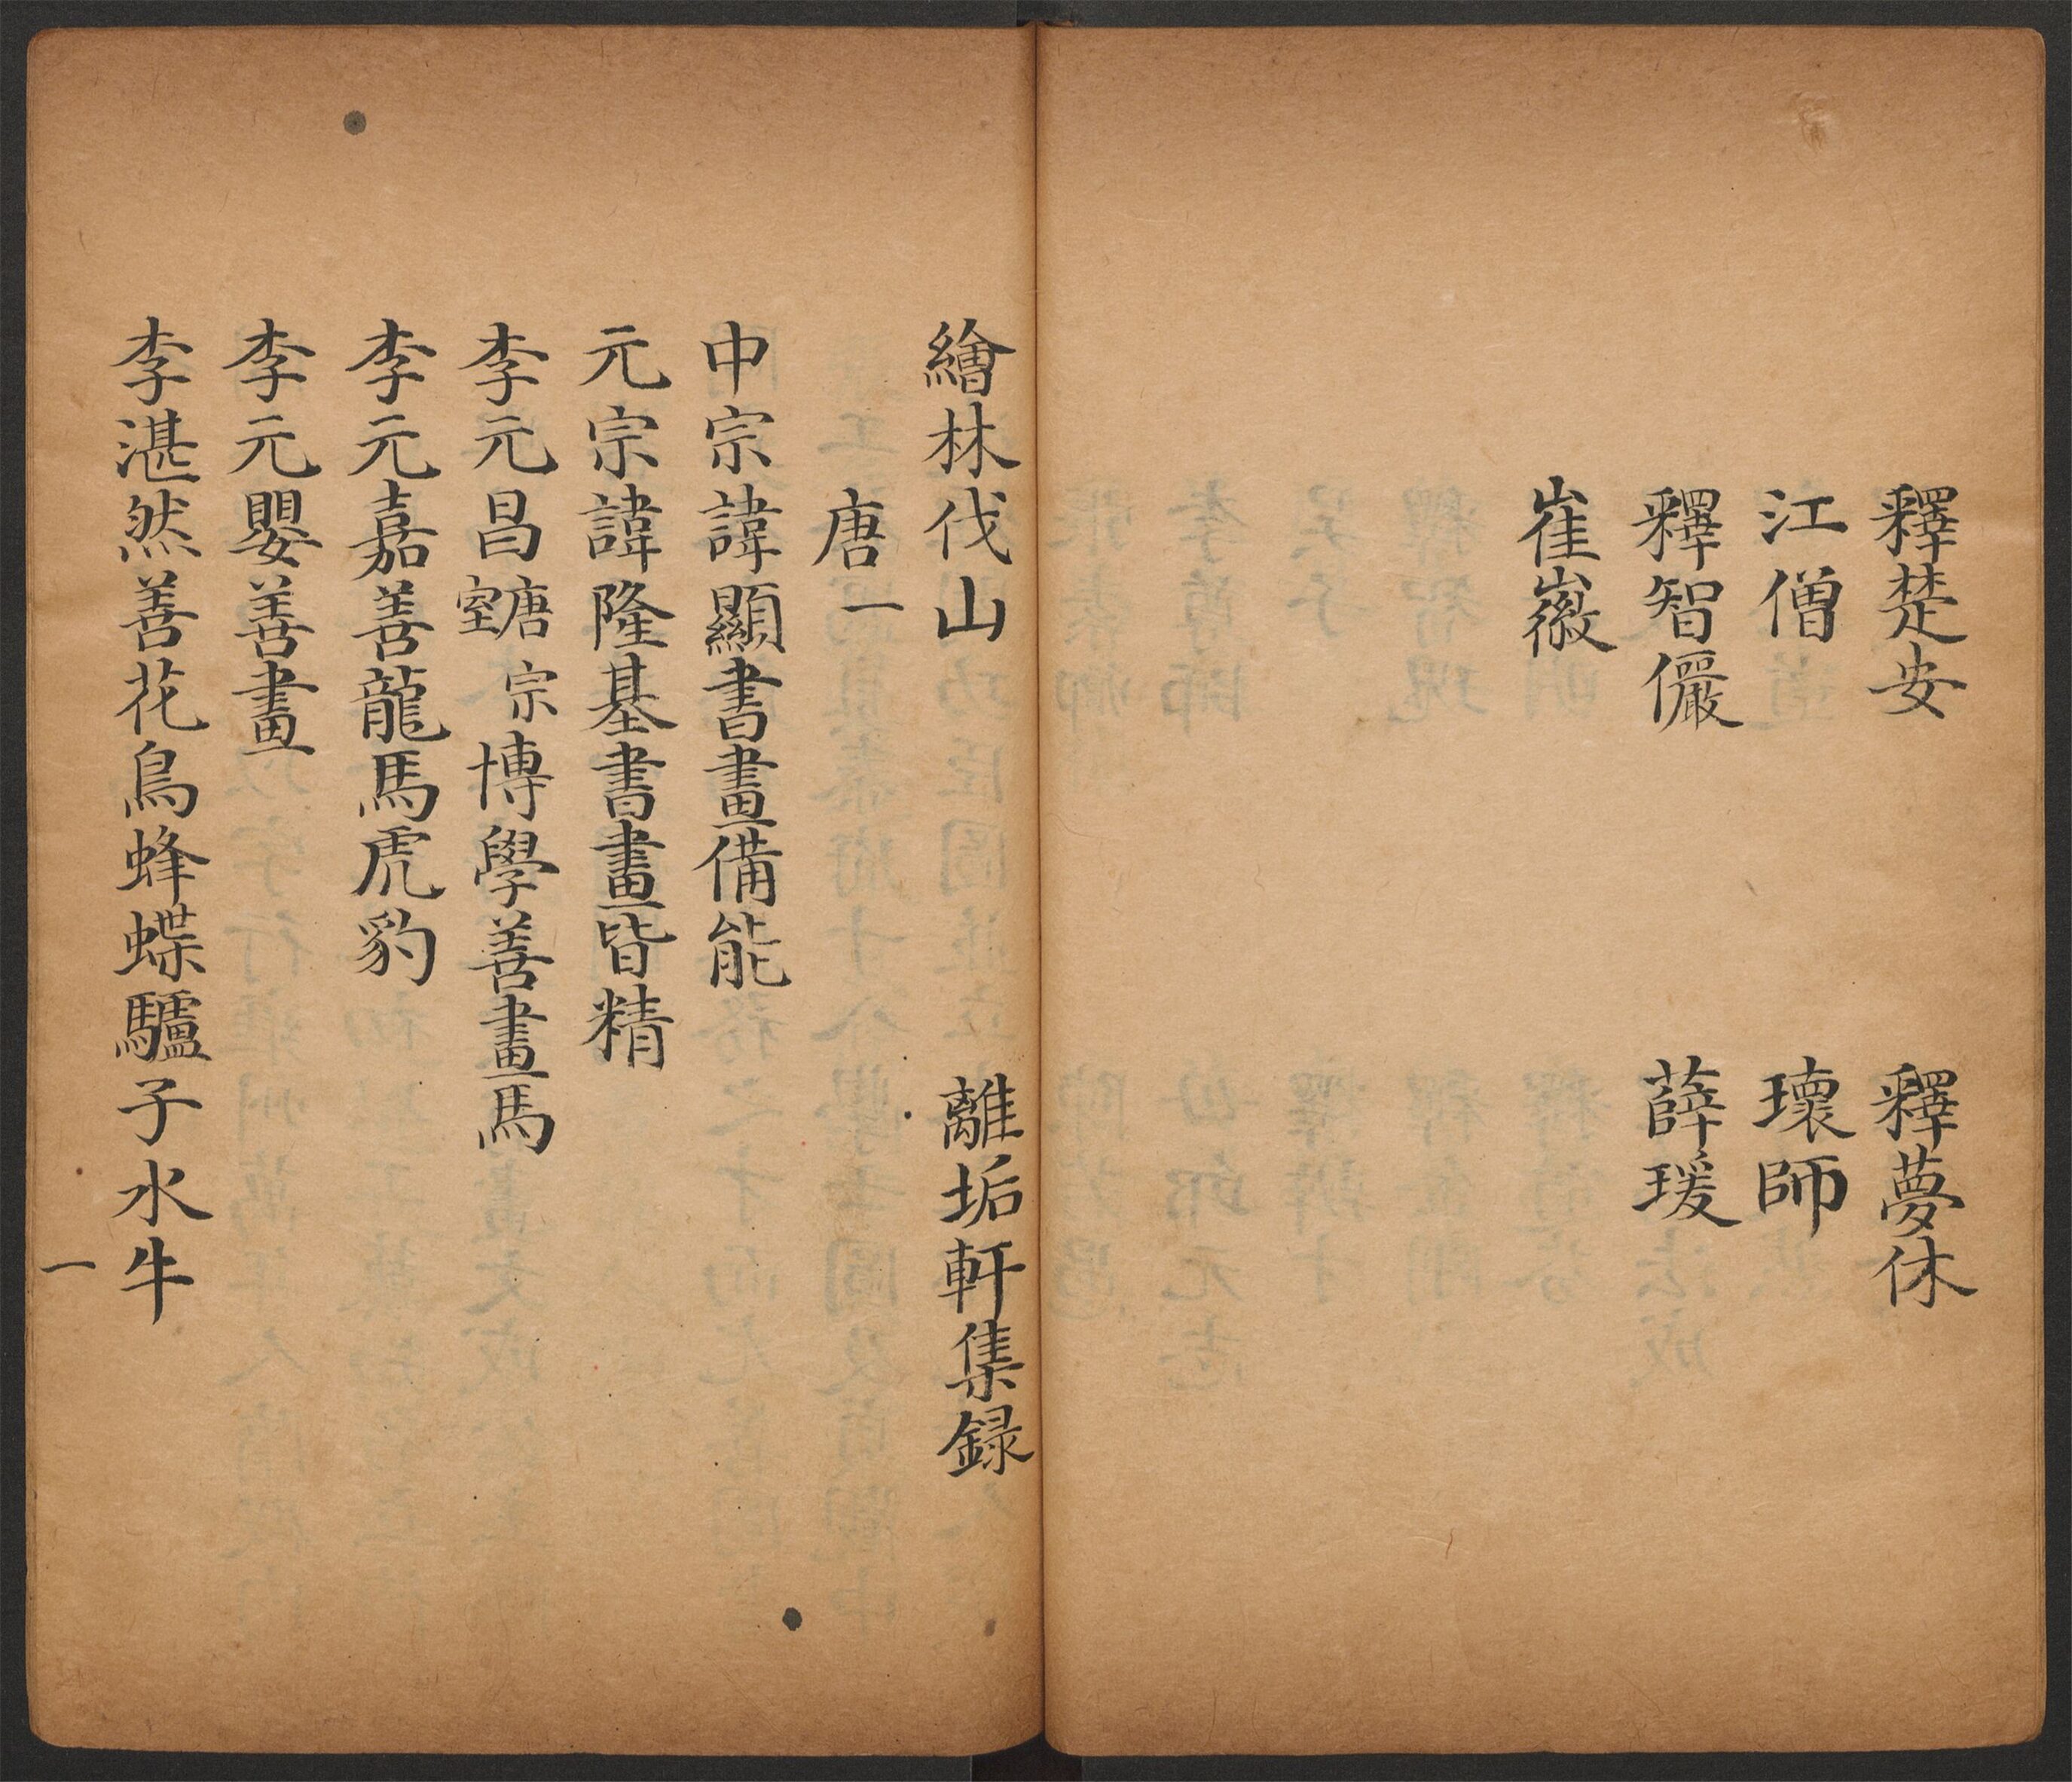 釋楚安　釋夢休
江僧　瓌師
釋智儼　薛瑗
崔巖
繪林伐山　離垢軒集録
唐一
中宗諱顯書畫備能
元宗諱隆基書畫皆精
李元昌唐宗室博學善畫馬
李元嘉善龍馬虎豹
李元嬰善畫
李湛然善花鳥蜂蝶驢子水牛
一